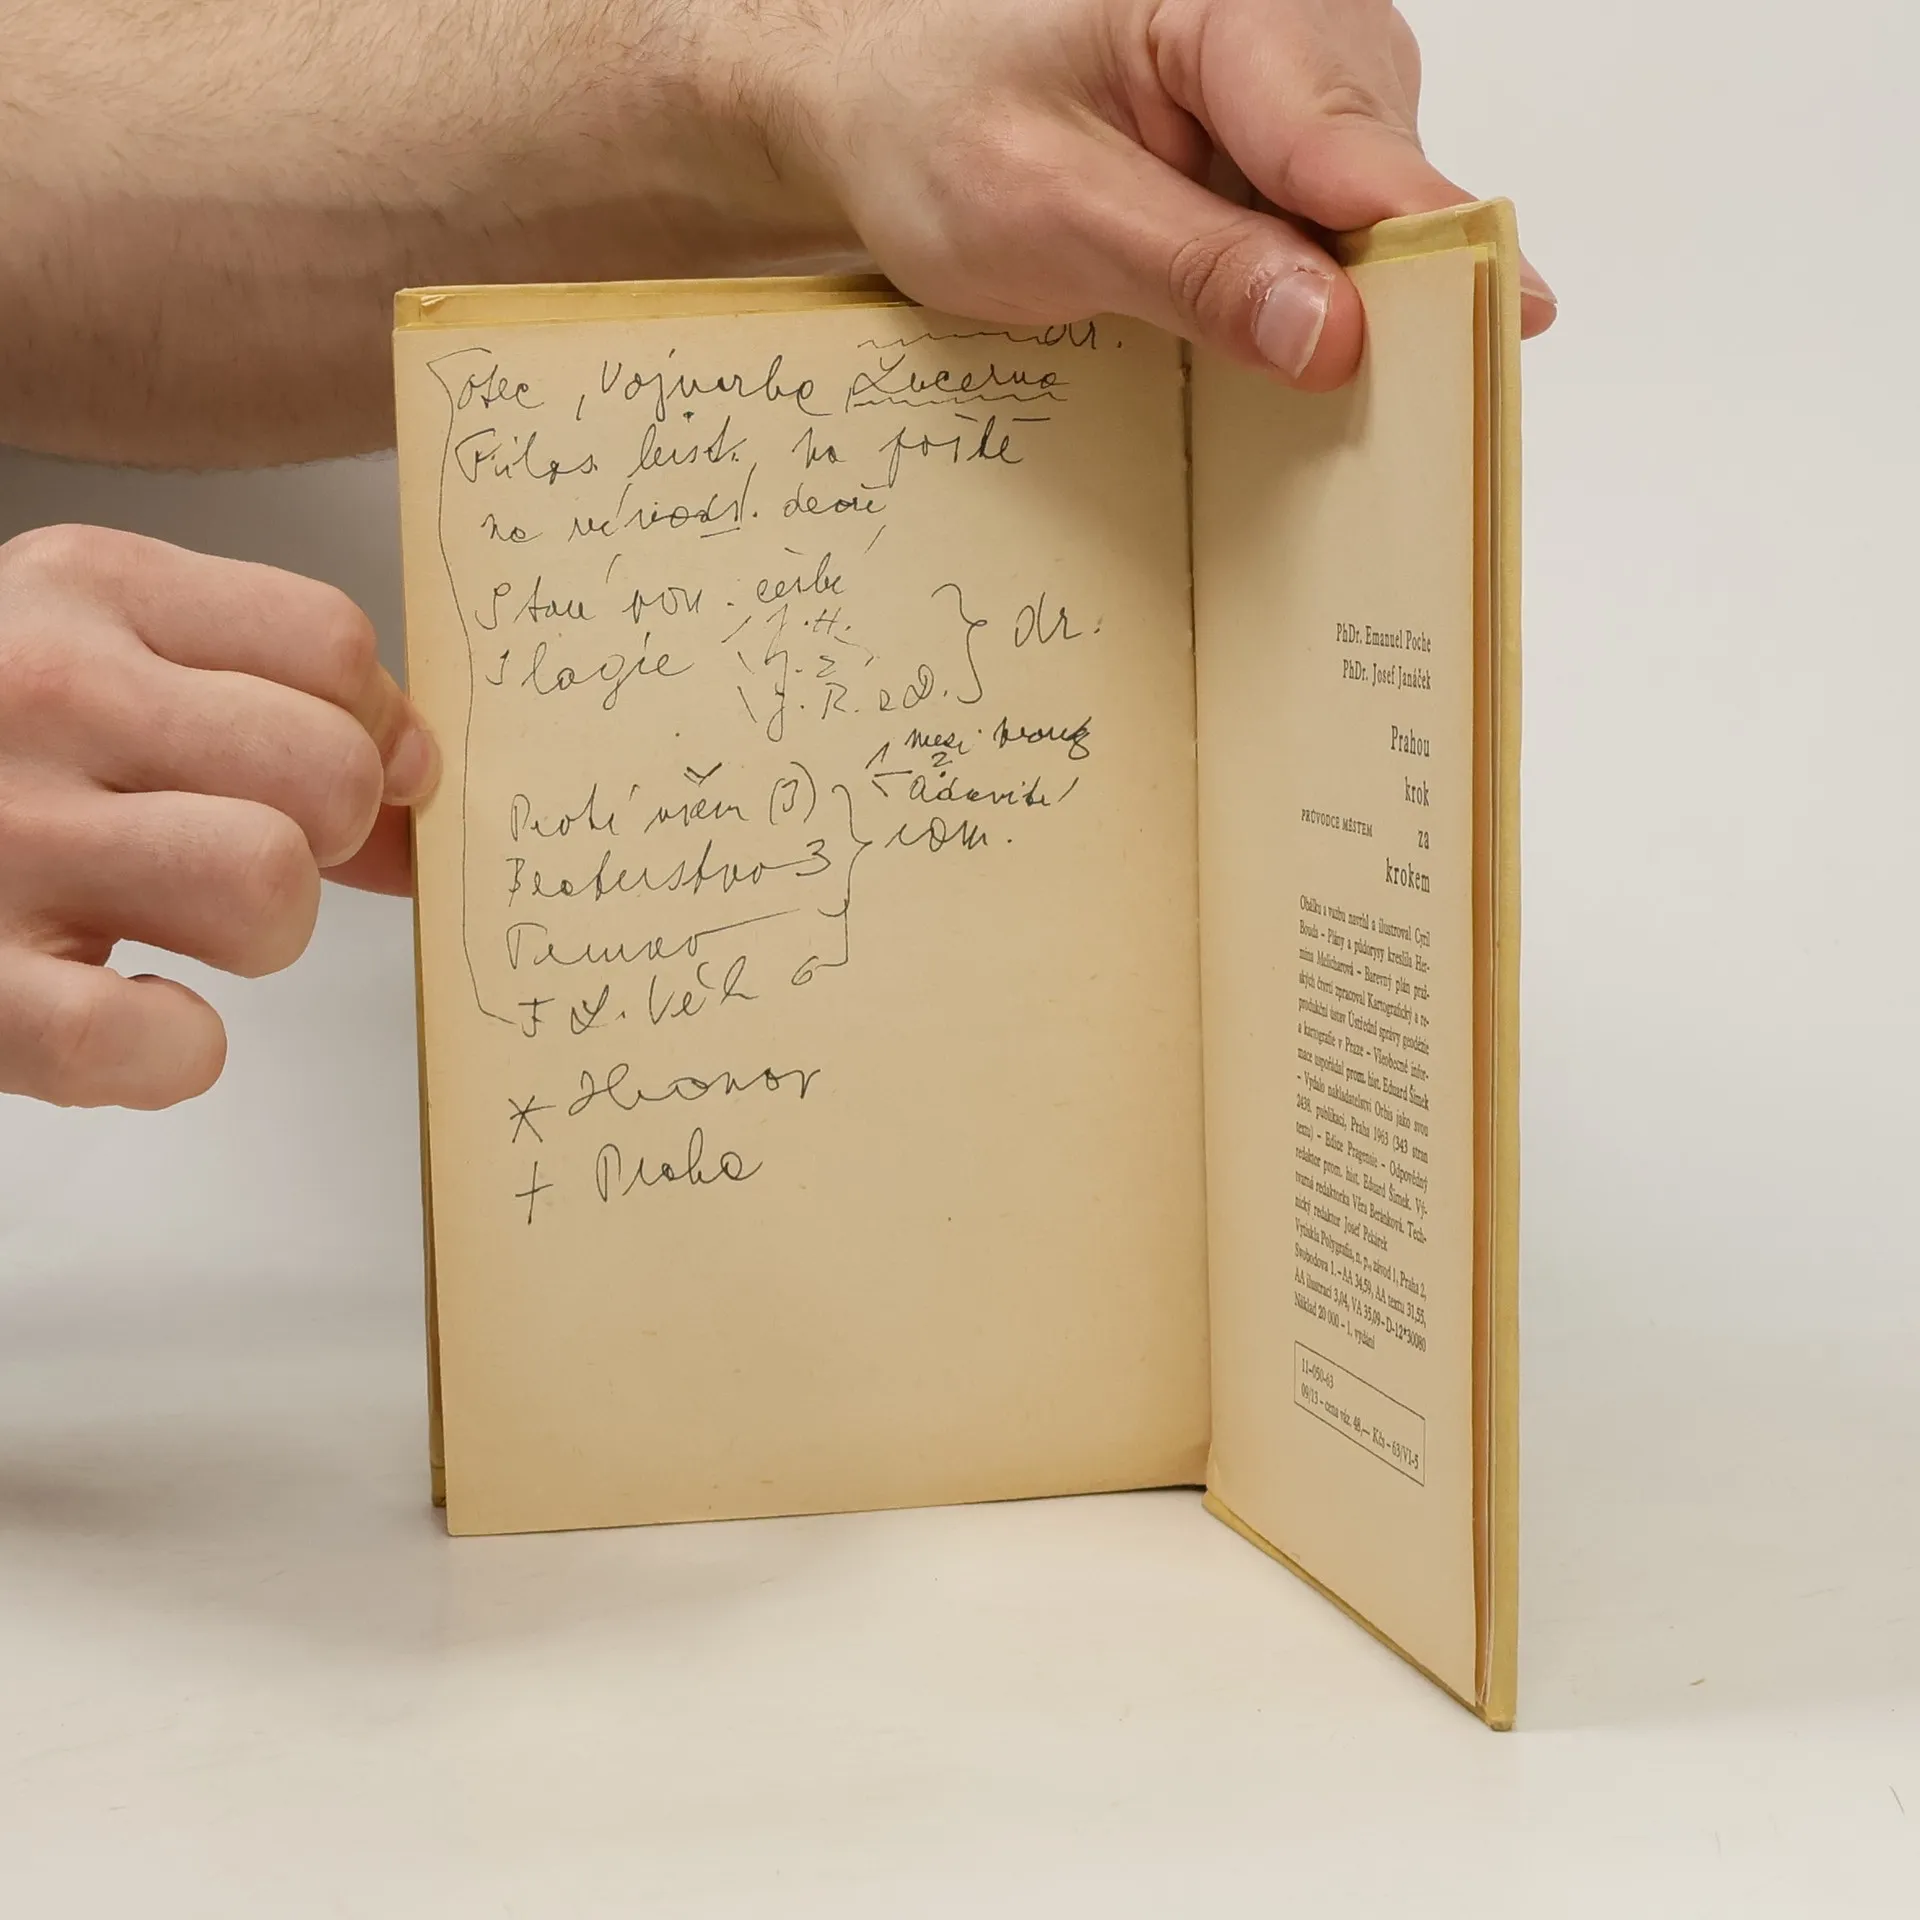 dr.
Otec, Vojnarka, Lucerna
Filos. hist., na poště
na
děti
Staré pov. české
J. H.
dr.
J. Ž.
J. R. a D.
mezi proudy
1
2
Proti všem (3)
Bratrstvo 3
rom.
Temno
F L. Věk 6
* Hronov
+ Praha
PhDr. Emanuel Poche
PhDr. Josef Janáček
Prahou
krok
PRŮVODCE MĚSTEM
za
krokem
Obálku a vazbu navrhl a ilustroval Cyril
Bouda – Plány a půdorysy kreslila Her-
mína Melicharová – Barevný plán praž-
ských čtvrtí zpracoval Kartografický a re-
produkční ústav Ústřední správy geodézie
a kartografie v Praze – Všeobecné infor-
mace uspořádal prom. hist. Eduard Šimek
– Vydalo nakladatelství Orbis jako svou
2438. publikaci, Praha 1963 (343 stran
textu) – Edice Pragensie – Odpovědný
redaktor prom. hist. Eduard Šimek. Vý-
tvarná redaktorka Věra Beránková. Tech-
nický redaktor Josef Pekárek
Vytiskla Polygrafia, n. p., závod 1, Praha 2,
Svobodova 1. – AA 34,59, AA textu 31,55,
AA ilustrací 3,04, VA 35,09 – D-12*30080
Náklad 20 000 – 1. vydání
11-050-63
09/13 – cena váz. 48,— Kčs – 63/VI-5